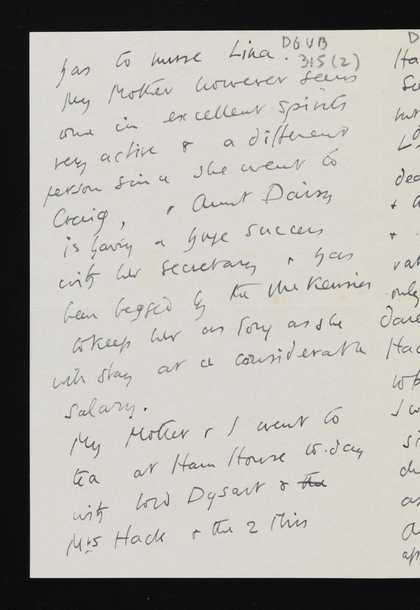 has to nurse Lina. DGVB
315(2)
My Mother however seems
in excellent spirits
very active & a different
person since she went to
Craig, & Aunt Daisy
is having a huge success
with her secretary & has
been begged by the McKennies
to keep her as long as she
will stay at a considerable
salary.
My Mother & I went to
tea at Ham House to-day
with Lord Dysart & the
Mrs Hack & the 2 Miss
D
Ha
dea
&
&
rat
only
dare
Hac
who
I w
si
as